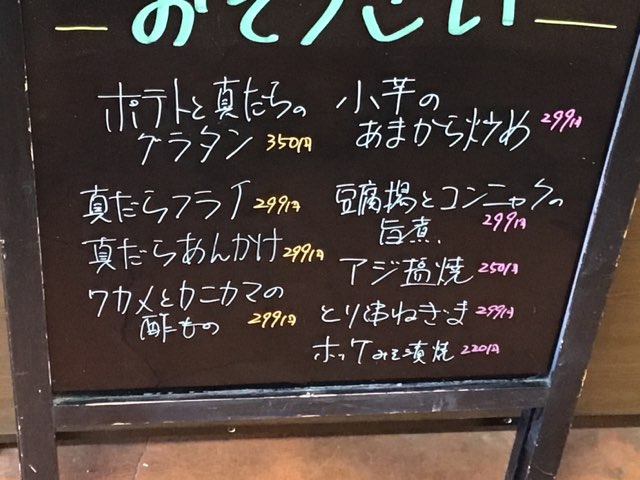 おそうざい
ポテトと真だちの
グラタン 350円
真だらフライ 299円
真だらあんかけ 299円
ワカメとカニカマの
酢もの 299円
小芋の
あまから炒め 299円
豆腐揚とコンニャクの
旨煮 299円
アジ塩焼 250円
とり串ねぎま 299円
ホッケみそ漬焼 220円